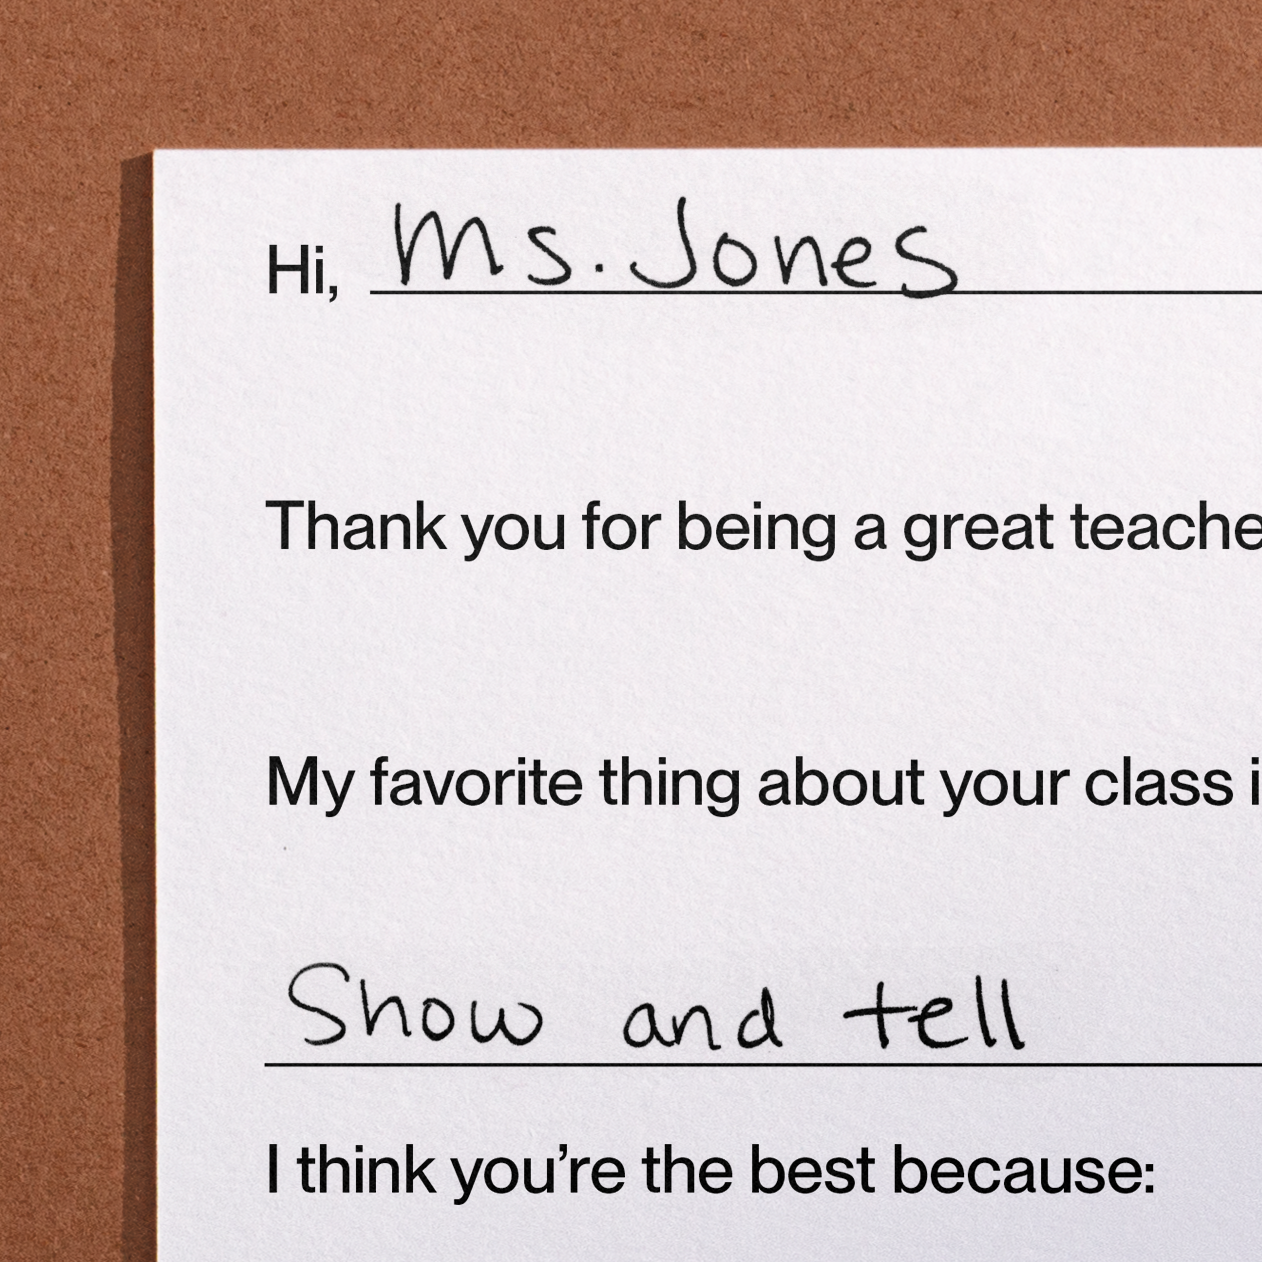 Hi, Ms. Jones
Thank you for being a great teache
My favorite thing about your class i
Show and tell
I think you’re the best because: